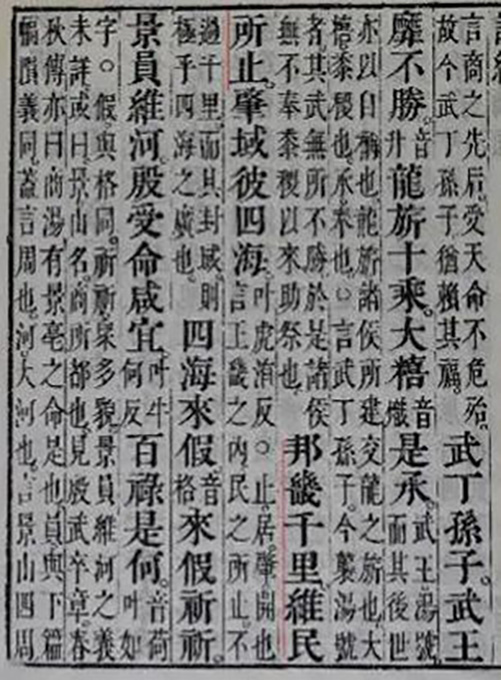 言商之先后。受天命不危殆。
故今武丁孫子猶賴其福。
武丁孫子。武王
靡不勝。音升龍旂十乘。大糦音熾是承。武王湯號。而其後世
亦以自稱也。龍旂諸侯所建交龍之旂也。大
糦黍稷也。承奉也。○言武丁孫子。今襲湯號
者。其武無所不勝。於是諸侯
無不奉黍稷以來助祭也。
邦畿千里。維民
所止。肇域彼四海。叶虎洧反。○止居。肇開也
言王畿之內。民之所止。不
過千里。而其封域則
極乎四海之廣也。
四海來假。音格來假祈祈。
景員維河。殷受命咸宜。叶牛何反百祿是何。音荷叶如
字。○假與格同。祈祈衆多貌。景員維河之義
未詳。或曰。景山名。商所都也。見殷武卒章。春
秋傳亦曰商湯有景亳之命是也。員與下篇
幅隕義同。蓋言周也。河大河也。言景山四周